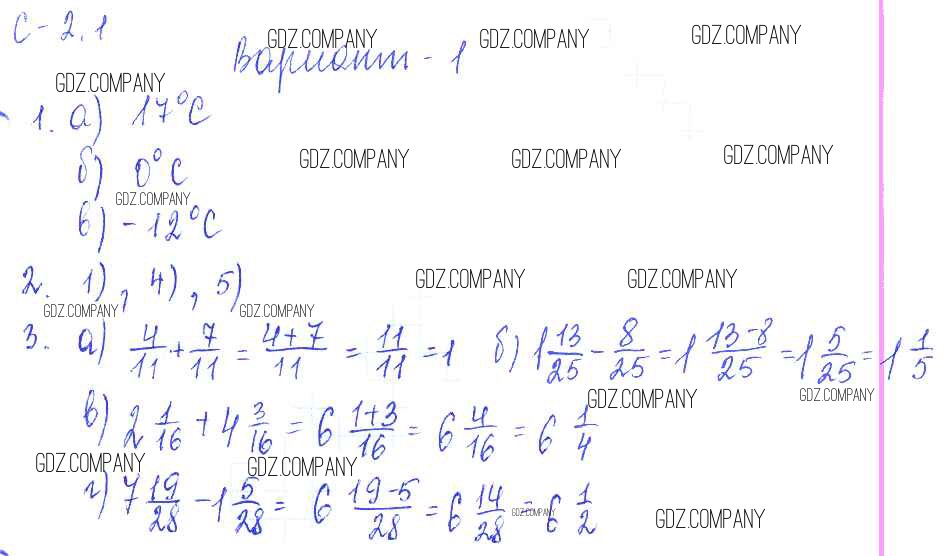 С-2.1
Вариант-1
1. а) 17°С
б) 0°С
в) -12°С
2. 1), 4), 5)
3. а) 4/11 + 7/11 = 4+7/11 = 11/11 = 1 б) 1 13/25 - 8/25 = 1 13-8/25 = 1 5/25 = 1 1/5
в) 2 1/16 + 4 3/16 = 6 1+3/16 = 6 4/16 = 6 1/4
г) 7 19/28 - 1 5/28 = 6 19-5/28 = 6 14/28 = 6 1/2
GDZ.COMPANY GDZ.COMPANY GDZ.COMPANY
GDZ.COMPANY
GDZ.COMPANY GDZ.COMPANY GDZ.COMPANY
GDZ.COMPANY
GDZ.COMPANY GDZ.COMPANY
GDZ.COMPANY GDZ.COMPANY
GDZ.COMPANY GDZ.COMPANY
GDZ.COMPANY GDZ.COMPANY
GDZ.COMPANY GDZ.COMPANY